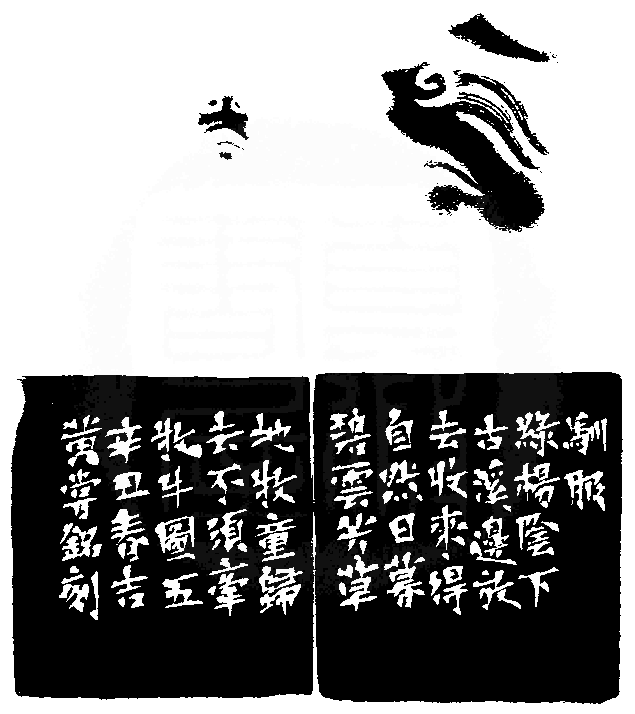 馴服
綠楊陰下
古溪邊放
去收來得
自然日暮
碧雲芳草
地牧童歸
去不須牽
牧牛圖五
辛丑春吉
黃嘗銘刻